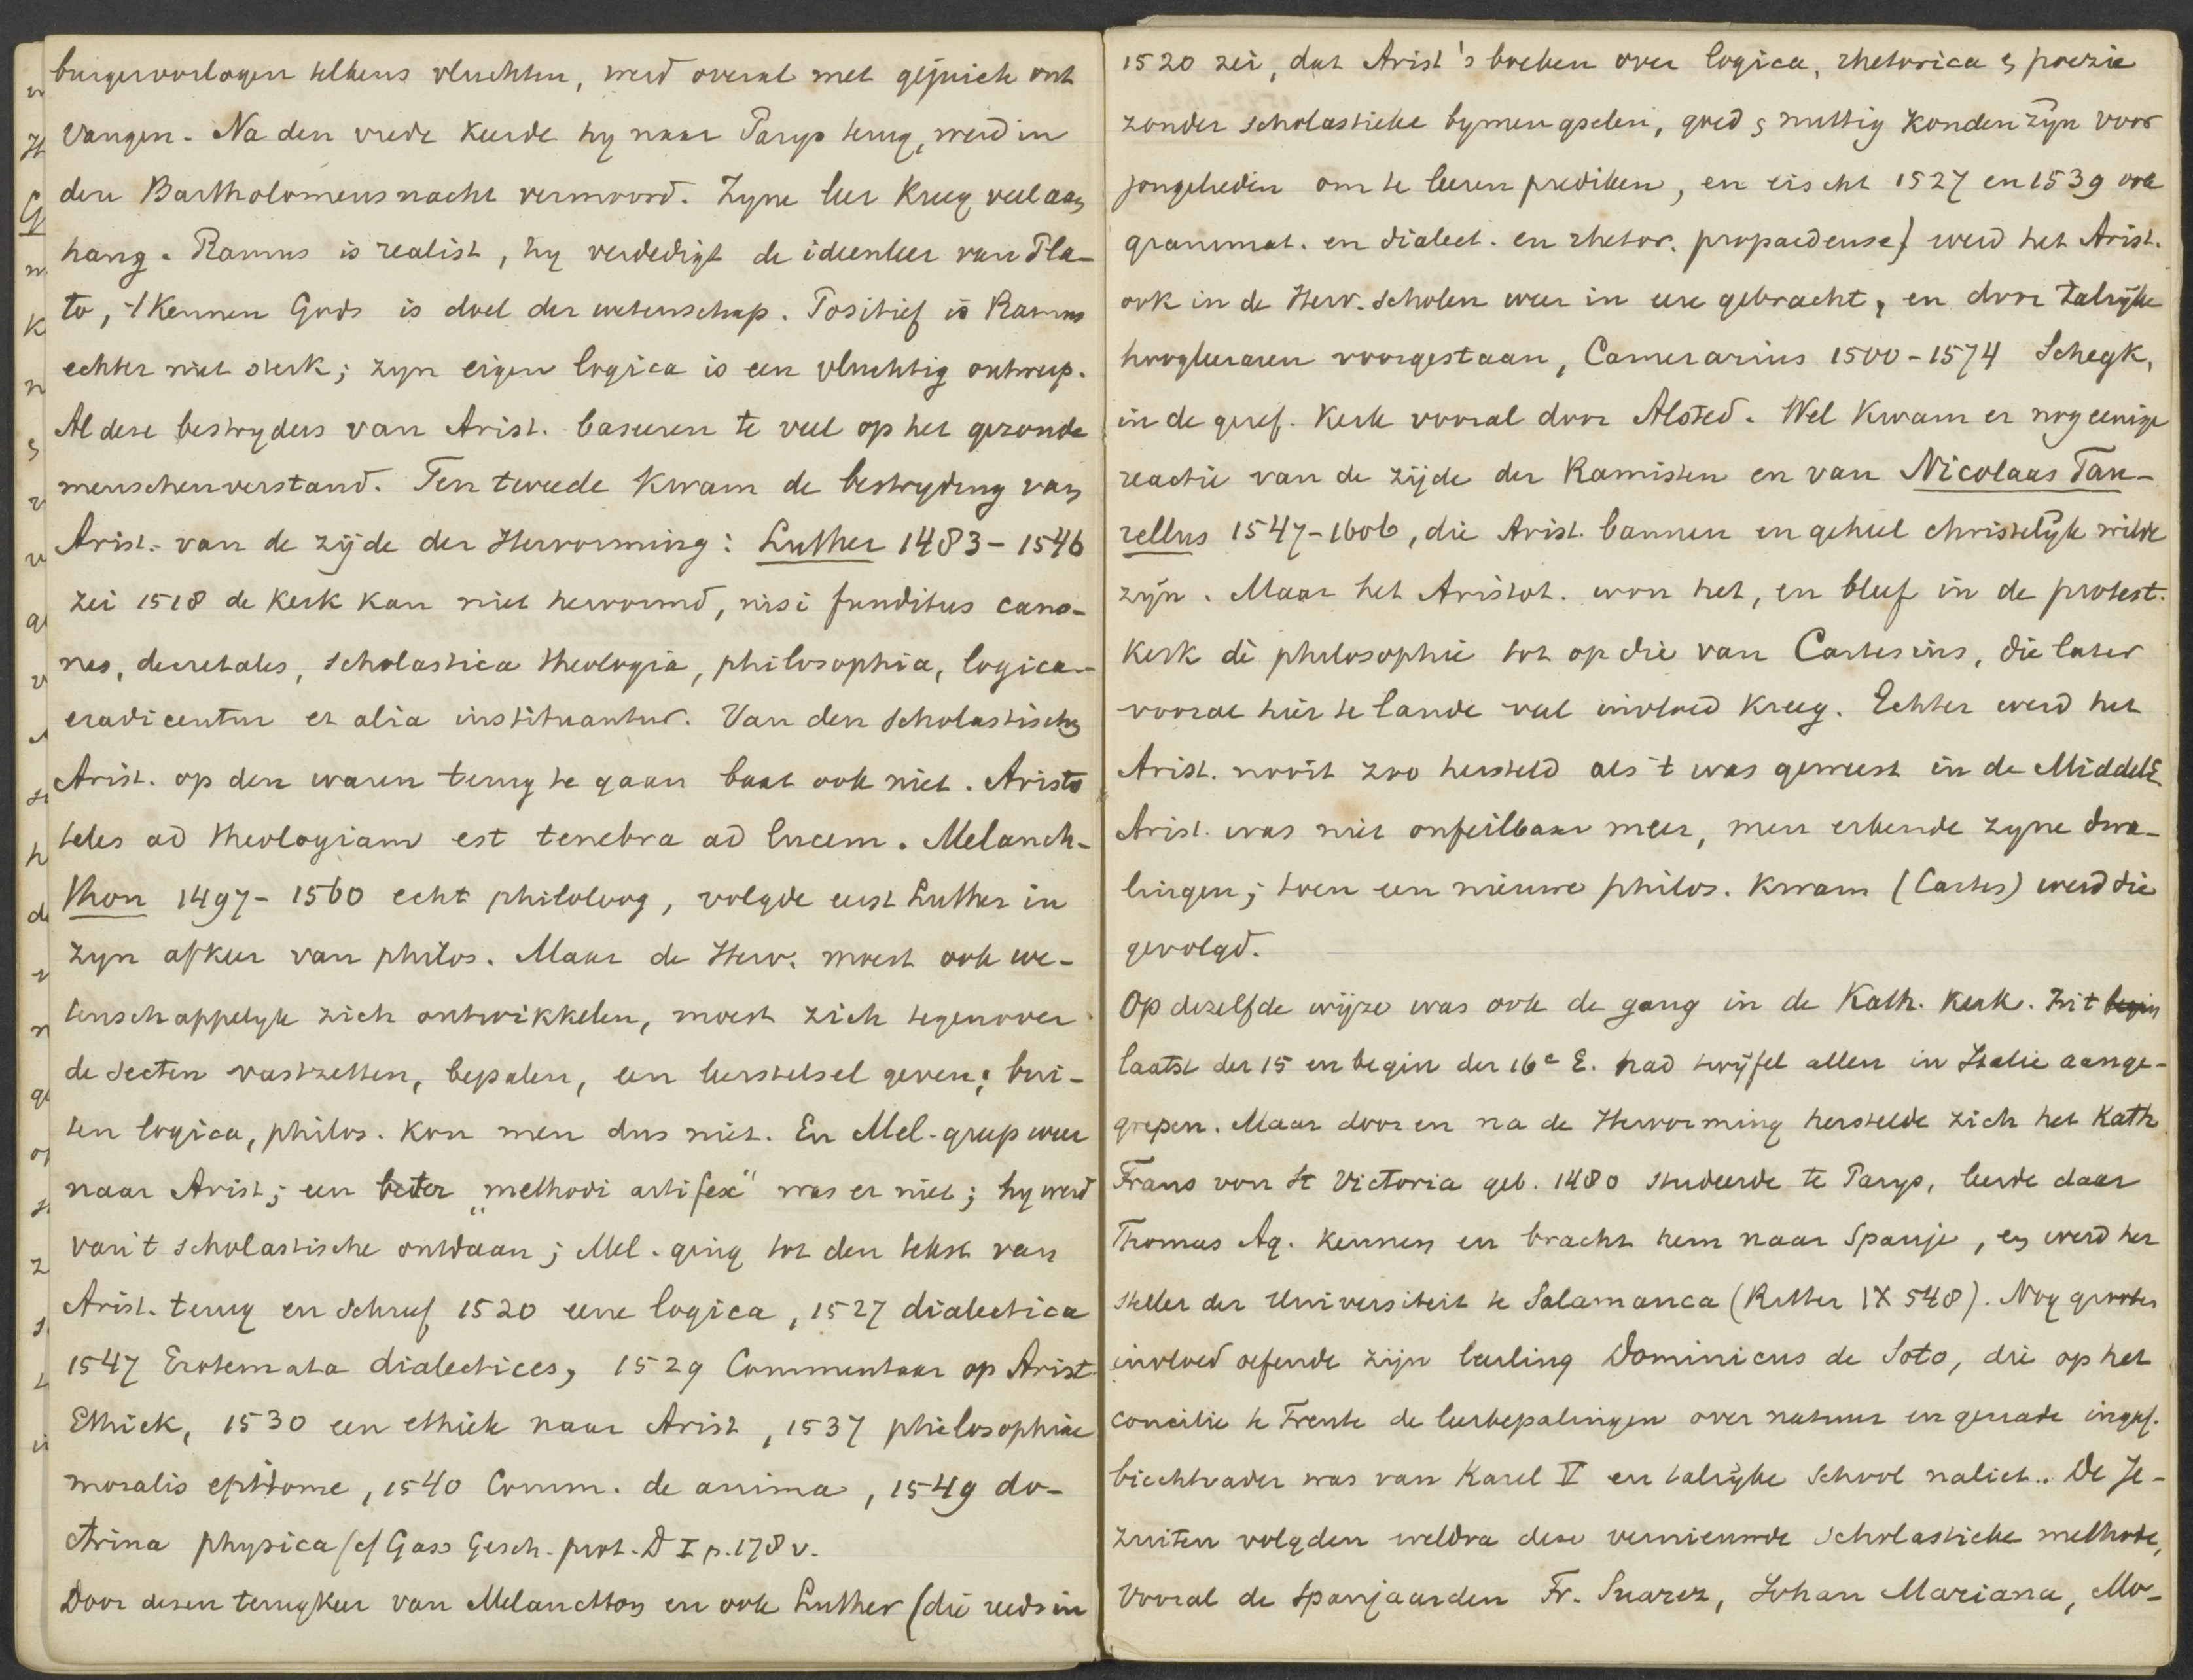 burgeroorlogen telkens vluchten, werd overal met gejuich ont
vangen. Na den vrede keerde hy naar Parys terug, werd in
den Bartholomeusnacht vermoord. Zyne leer kreeg veel aan
hang. Ramus is realist, hy verdedigt de ideenleer van Pla-
to, 't kennen Gods is doel der wetenschap. Positief is Ramus
echter niet sterk; zyn eigen logica is een vluchtig ontwerp.
Al deze bestryders van Arist. baseeren te veel op het gezonde
menschenverstand. Ten tweede kwam de bestryding van
Arist. van de zijde der Hervorming: Luther 1483-1546
zei 1518 de kerk kan niet hervormd, nisi funditus cano-
nes, decretales, scholastica theologia, philosophia, logica
eradicentur et alia instituantur. Van den scholastischen
Arist. op den waren terug te gaan baat ook niet. Aristo
teles ad theologiam est tenebra ad lucem. Melanch-
thon 1497-1560 echt philoloog, volgde eerst Luther in
zyn afkeer van philos. Maar de Herv. moest ook we-
tenschappelyk zich ontwikkelen, moest zich tegenover
de secten vastzetten, bepalen, een leerstelsel geven; bui-
ten logica, philos. kon men dus niet. En Mel. greep weer
naar Arist; een beter „methodi artifex" was er niet; hy werd
van 't scholastische ontdaan; Mel. ging tot den tekst van
Arist. terug en schreef 1520 eene logica, 1527 dialectica
1547 Erotemata dialectices, 1529 Commentaar op Arist.
Ethiek, 1530 een ethiek naar Arist, 1537 philosophiae
moralis epitome, 1540 Comm. de anima, 1549 do-
ctrina physica (cf Gass Gesch. prot. D I p. 178 v.
Door dezen terugkeer van Melancthon en ook Luther (die reeds in
1520 zei, dat Arist's boeken over logica, rhetorica & poezie
zonder scholastieke bymengselen, goed & nuttig konden zyn voor
jongelieden om te leeren prediken, en eischt 1527 en 1539 ook
grammat. en dialect. en rhetor. propaedeuse) werd het Arist.
ook in de Herv. scholen weer in eere gebracht, en door talrijke
hoogleeraren voorgestaan, Camerarius 1500-1574 Schegk,
in de geref. kerk vooral door Alsted. Wel kwam er nog eenige
reactie van de zijde der Ramisten en van Nicolaas Tau-
rellus 1547-1606, die Arist. bannen en geheel christelijk wilde
zijn. Maar het Aristot. won het, en bleef in de protest.
kerk de philosophie tot op die van Cartesius, die later
vooral hier te lande veel invloed kreeg. Echter werd het
Arist. nooit zoo hersteld als 't was geweest in de Middele
Arist. was niet onfeilbaar meer, men erkende zyne dwa-
lingen; toen een nieuwe philos. kwam (Cartes) werd die
gevolgd.
Op dezelfde wijze was ook de gang in de Kath. kerk. In 't begin
laatst der 15 en begin der 16e E. had twijfel allen in Italie aange-
grepen. Maar door en na de Hervorming herstelde zich het Kath.
Frans von St Victoria geb. 1480 studeerde te Parys, leerde daar
Thomas Aq. kennen en bracht hem naar Spanje, en werd her
steller der Universiteit te Salamanca (Ritter IX 548). Nog grooter
invloed oefende zijn leerling Dominicus de Soto, die op het
concilie te Trente de leerbepalingen over natuur en genade ingaf.
biechtvader was van Karel V en talrijke school naliet. De Je-
zuiten volgden weldra deze vernieuwde scholastieke methode,
vooral de Spanjaarden Fr. Suarez, Johan Mariana, Mo-